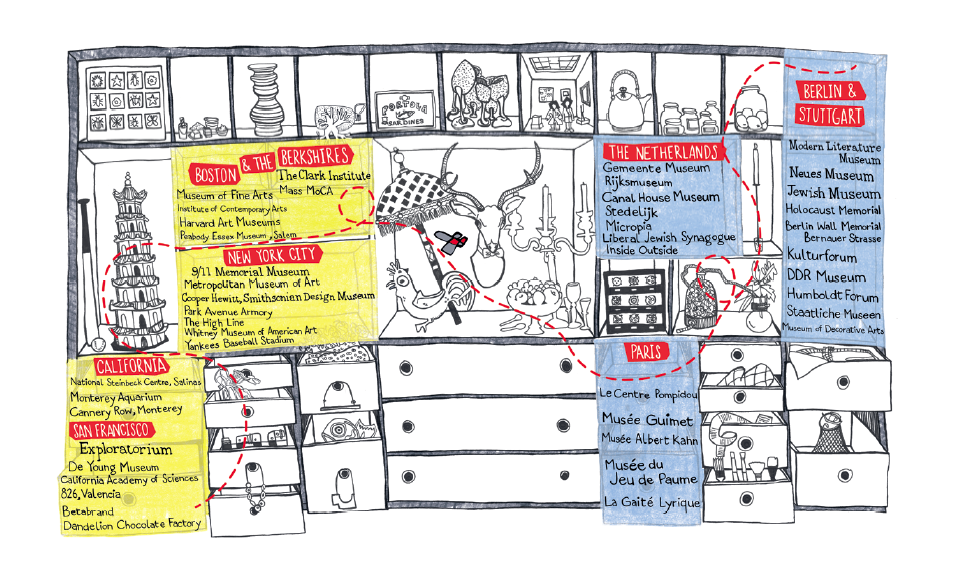 PORTOLA
SARDINES
BOSTON & THE BERKSHIRES
The Clark Institute
Mass MoCA
Museum of Fine Arts
Institute of Contemporary Arts
Harvard Art Museums
Peabody Essex Museum, Salem
NEW YORK CITY
9/11 Memorial Museum
Metropolitan Museum of Art
Cooper Hewitt, Smithsonian Design Museum
Park Avenue Armory
The High Line
Whitney Museum of American Art
Yankees Baseball Stadium
CALIFORNIA
National Steinbeck Centre, Salinas
Monterey Aquarium
Cannery Row, Monterey
SAN FRANCISCO
Exploratorium
De Young Museum
California Academy of Sciences
826, Valencia
Betabrand
Dandelion Chocolate Factory
THE NETHERLANDS
Gemeente Museum
Rijksmuseum
Canal House Museum
Stedelijk
Micropia
Liberal Jewish Synagogue
Inside Outside
PARIS
Le Centre Pompidou
Musée Guimet
Musée Albert Kahn
Musée du
Jeu de Paume
La Gaité Lyrique
BERLIN &
STUTTGART
Modern Literature
Museum
Neues Museum
Jewish Museum
Holocaust Memorial
Berlin Wall Memorial
Bernauer Strasse
Kulturforum
DDR Museum
Humboldt Forum
Staatliche Museen
Museum of Decorative Arts